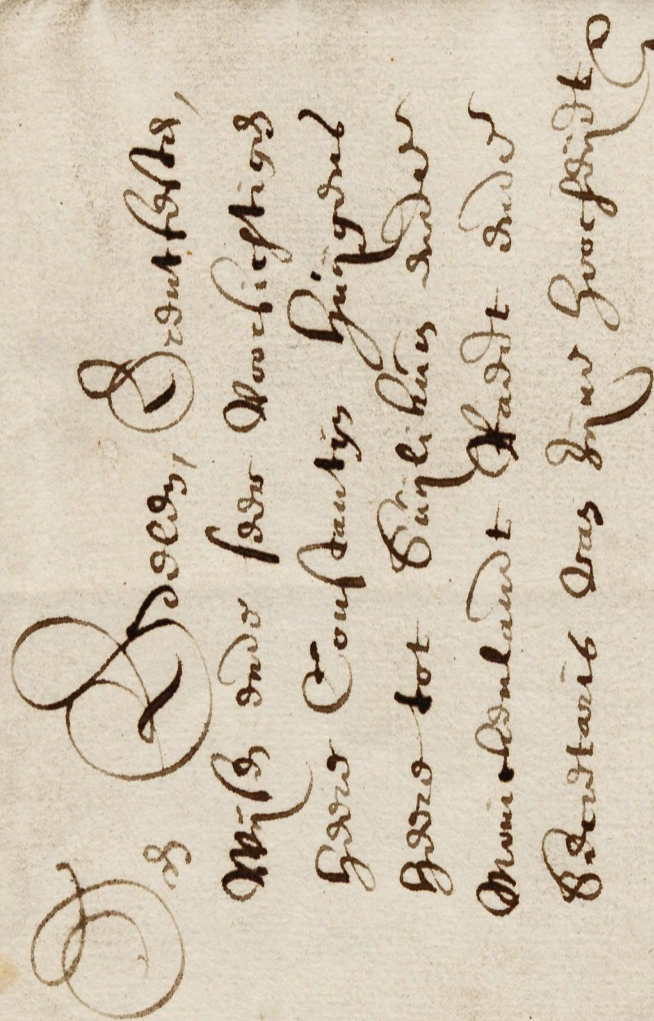 De Eedele, Erentfeste,
Wijse ende seer Voorsichtige
Heere Constantijn Huijgens
Heere tot Suijlikum ende
Monickenlandt Raedt ende
Secretaris van Zijne Hoocheijdt